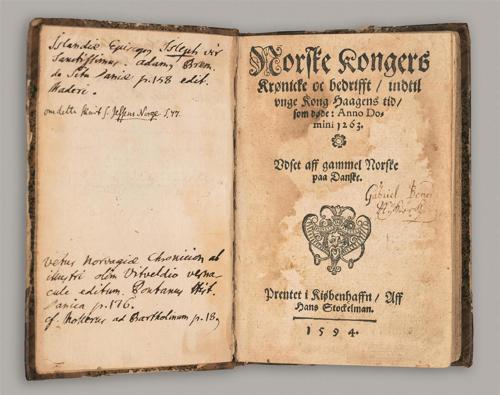 Islandiæ Episcop. Isleph vir
Sanctissimus. adam. Brem.
de Situ Daniæ p. 158 edit.
Maderi.
om dette skrift s. Jessens Norge S. 77.
Vetus Norvagiæ Chronicon ab
illustri olim Vitveldio verna
cule editum. Pontanus Hist.
Danica p. 176.
cf. Mollerus ad Bartholinum p. 18
Norske Kongers
Krønicke oc bedrifft / indtil
vnge Kong Haagens tid /
som døde: Anno Do-
mini 1263.
Vdset aff gammel Norske
paa Danske.
Gabriel
Prentet i Kiøbenhaffn / Aff
Hans Stockelman.
1594.